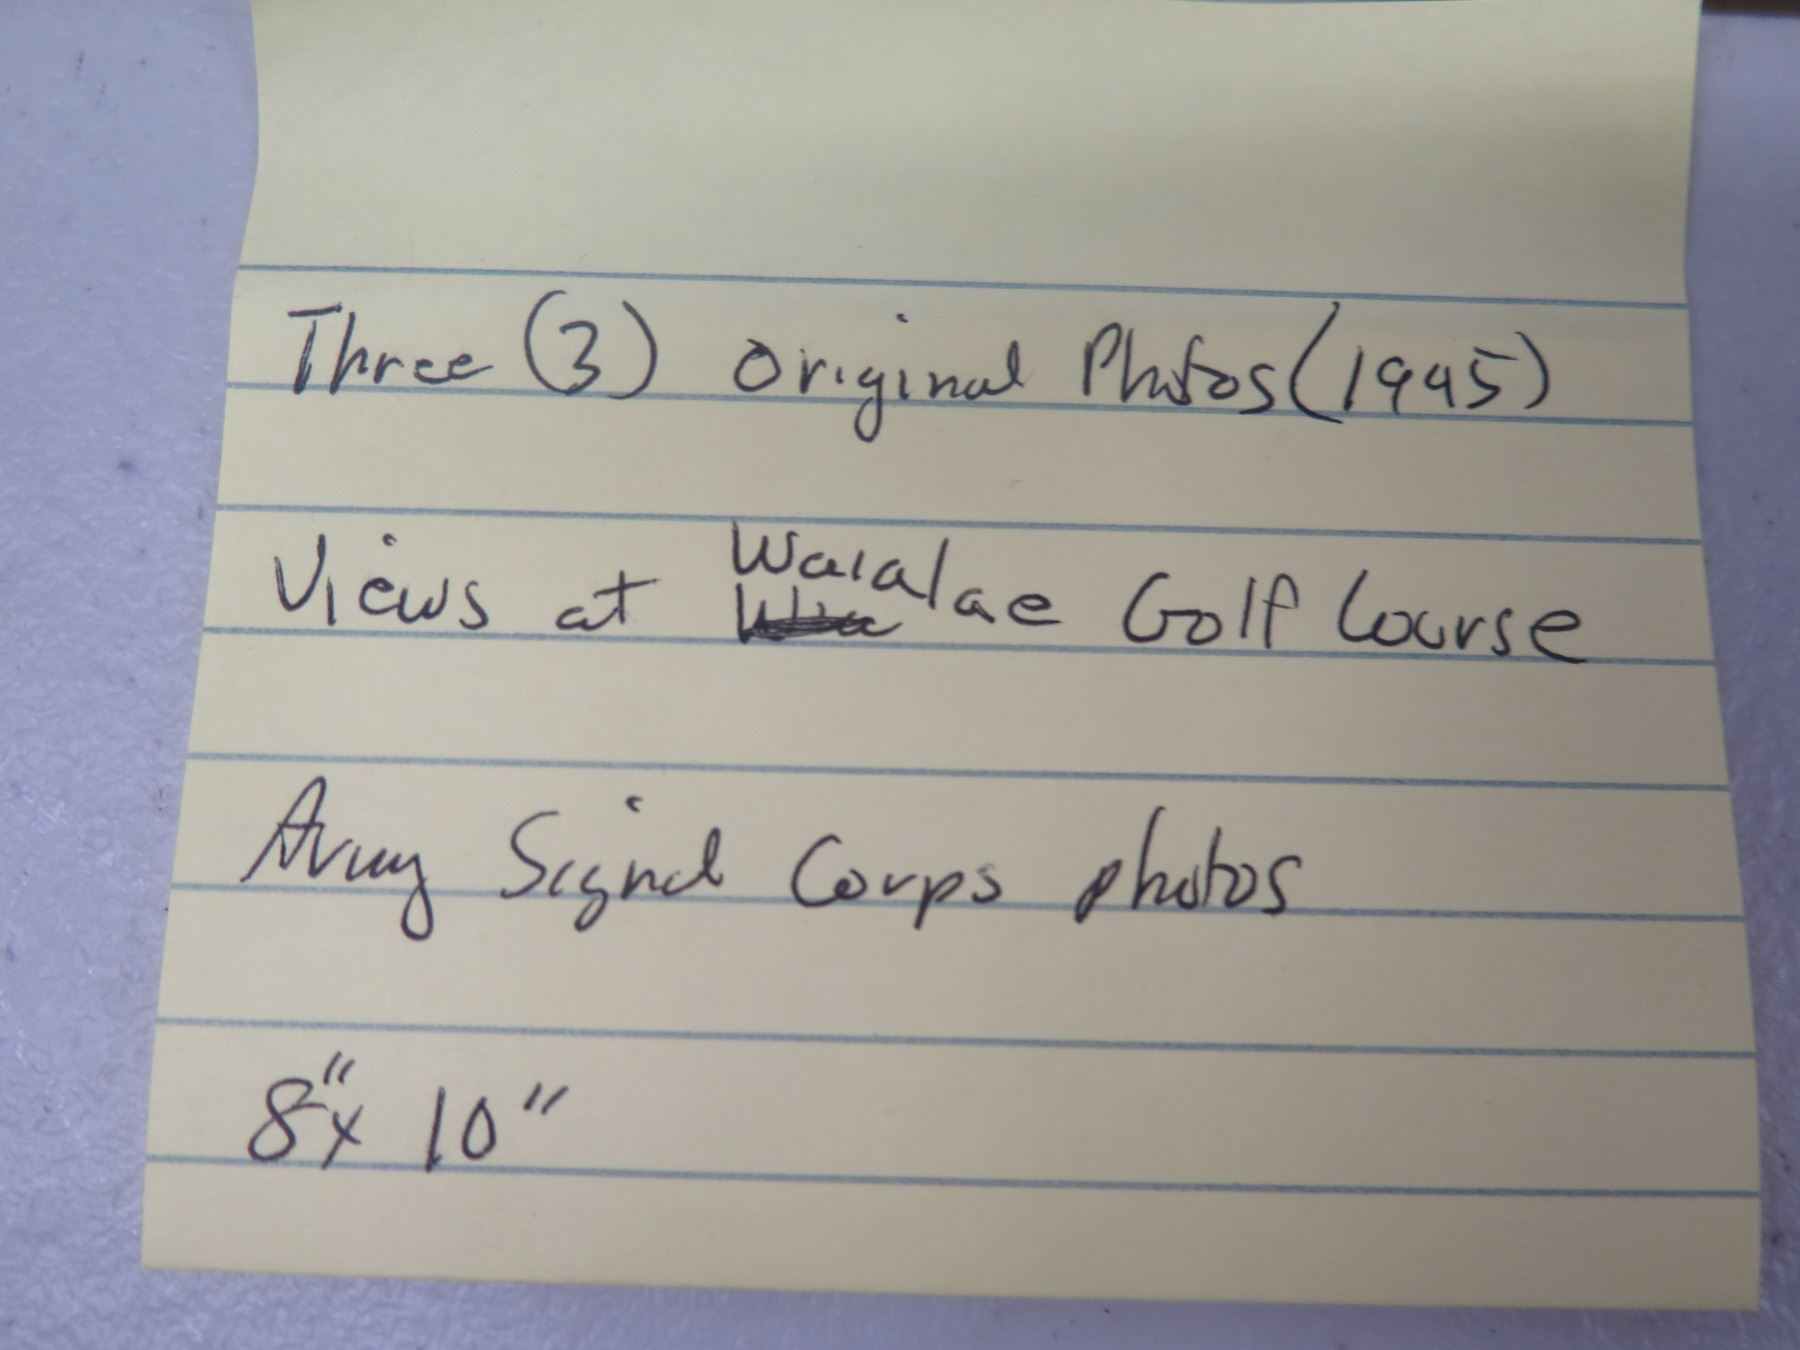 Three (3) Original Photos (1945)
Views at Waialae Golf Course
Army Signal Corps photos
8" x 10"